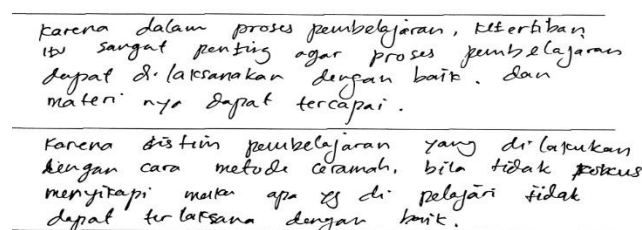 Karena dalam proses pembelajaran, ketertiban
itu sangat penting agar proses pembelajaran
dapat di laksanakan dengan baik. dan
materi nya dapat tercapai.
Karena sistim pembelajaran yang di lakukan
dengan cara metode ceramah, bila tidak fokus
menyikapi maka apa yg di pelajari tidak
dapat terlaksana dengan baik.